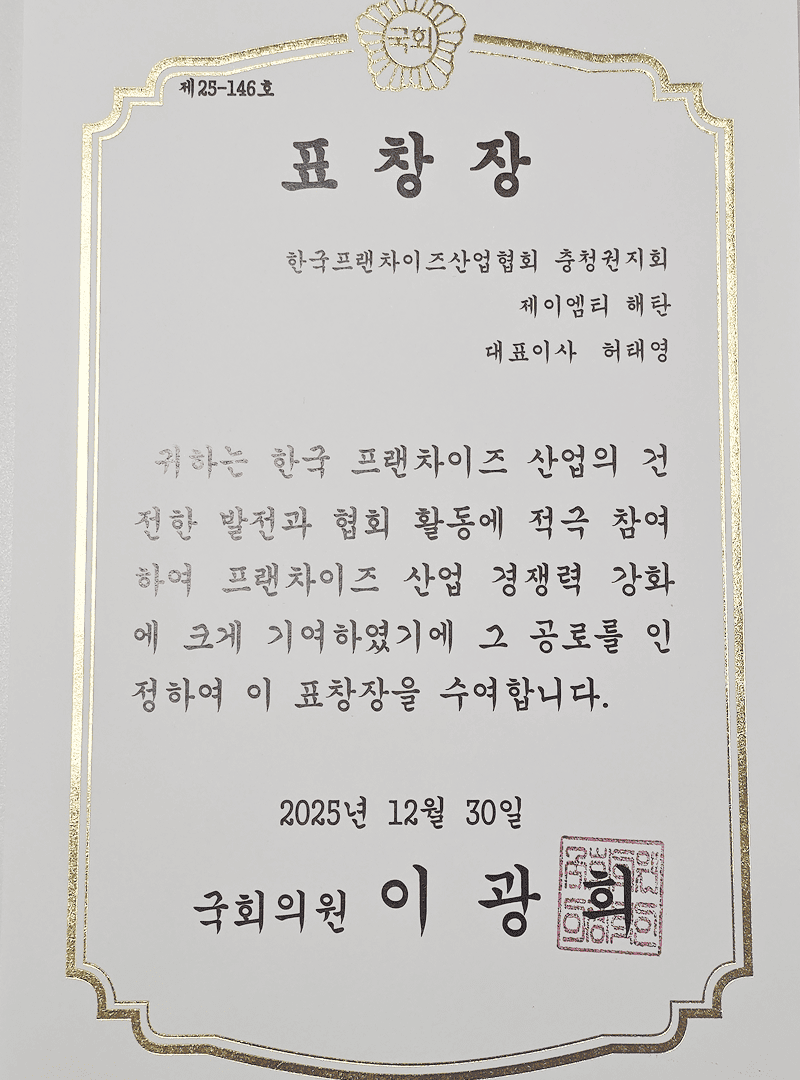 국회
제25-146호
표 창 장
한국프랜차이즈산업협회 충청권지회
제이엠티 해탄
대표이사 허태영
귀하는 한국 프랜차이즈 산업의 건
전한 발전과 협회 활동에 적극 참여
하여 프랜차이즈 산업 경쟁력 강화
에 크게 기여하였기에 그 공로를 인
정하여 이 표창장을 수여합니다.
2025년 12월 30일
국회의원 이 광 희